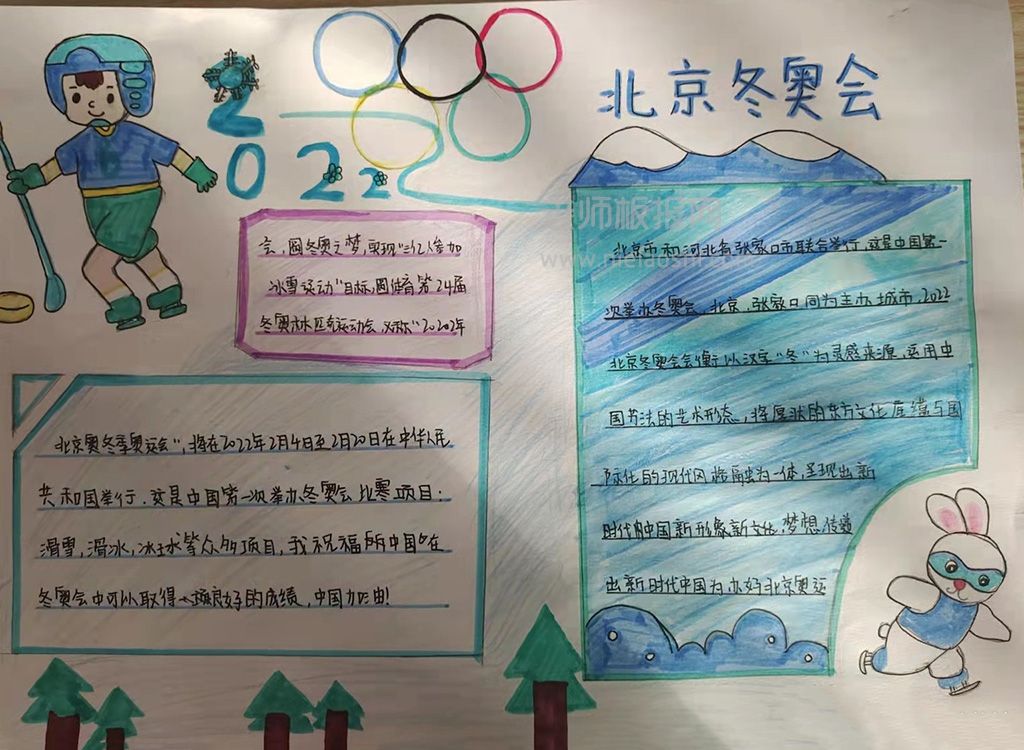 北京冬奥会
2022
北京市和河北省张家口市联合举行,这是中国第一
次举办冬奥会,北京,张家口同为主办城市,2022
北京冬奥会会徽以汉字“冬”为灵感来源,运用中
国书法的艺术形态,将厚状的东方文化底蕴与国
际化的现代风格融为一体,呈现出新
时代的中国新形象新文化,梦想,传递
出新时代中国为办好北京奥运
会,圆冬奥之梦,实现“三亿人参加
冰雪运动”目标,圆体育第24届
冬奥林匹克运动会,又称“2022年
北京奥冬季奥运会”,将在2022年2月4日至2月20日在中华人民
共和国举行.这是中国第一次举办冬奥会比赛项目:
滑雪,滑冰,冰球等众多项目,我祝福所中国在
冬奥会中可以取得良好的成绩,中国加油!
师板报网